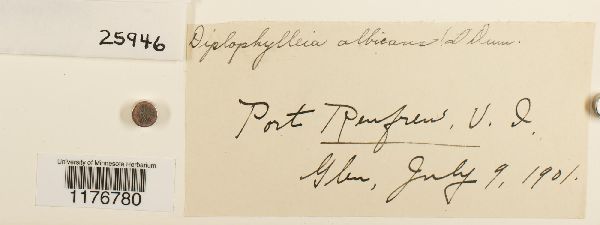 25946
Diplophylleia albicans (L) Dum.
Port Renfrew, V. I.
Glen, July 9, 1901.
University of Minnesota Herbarium
1176780